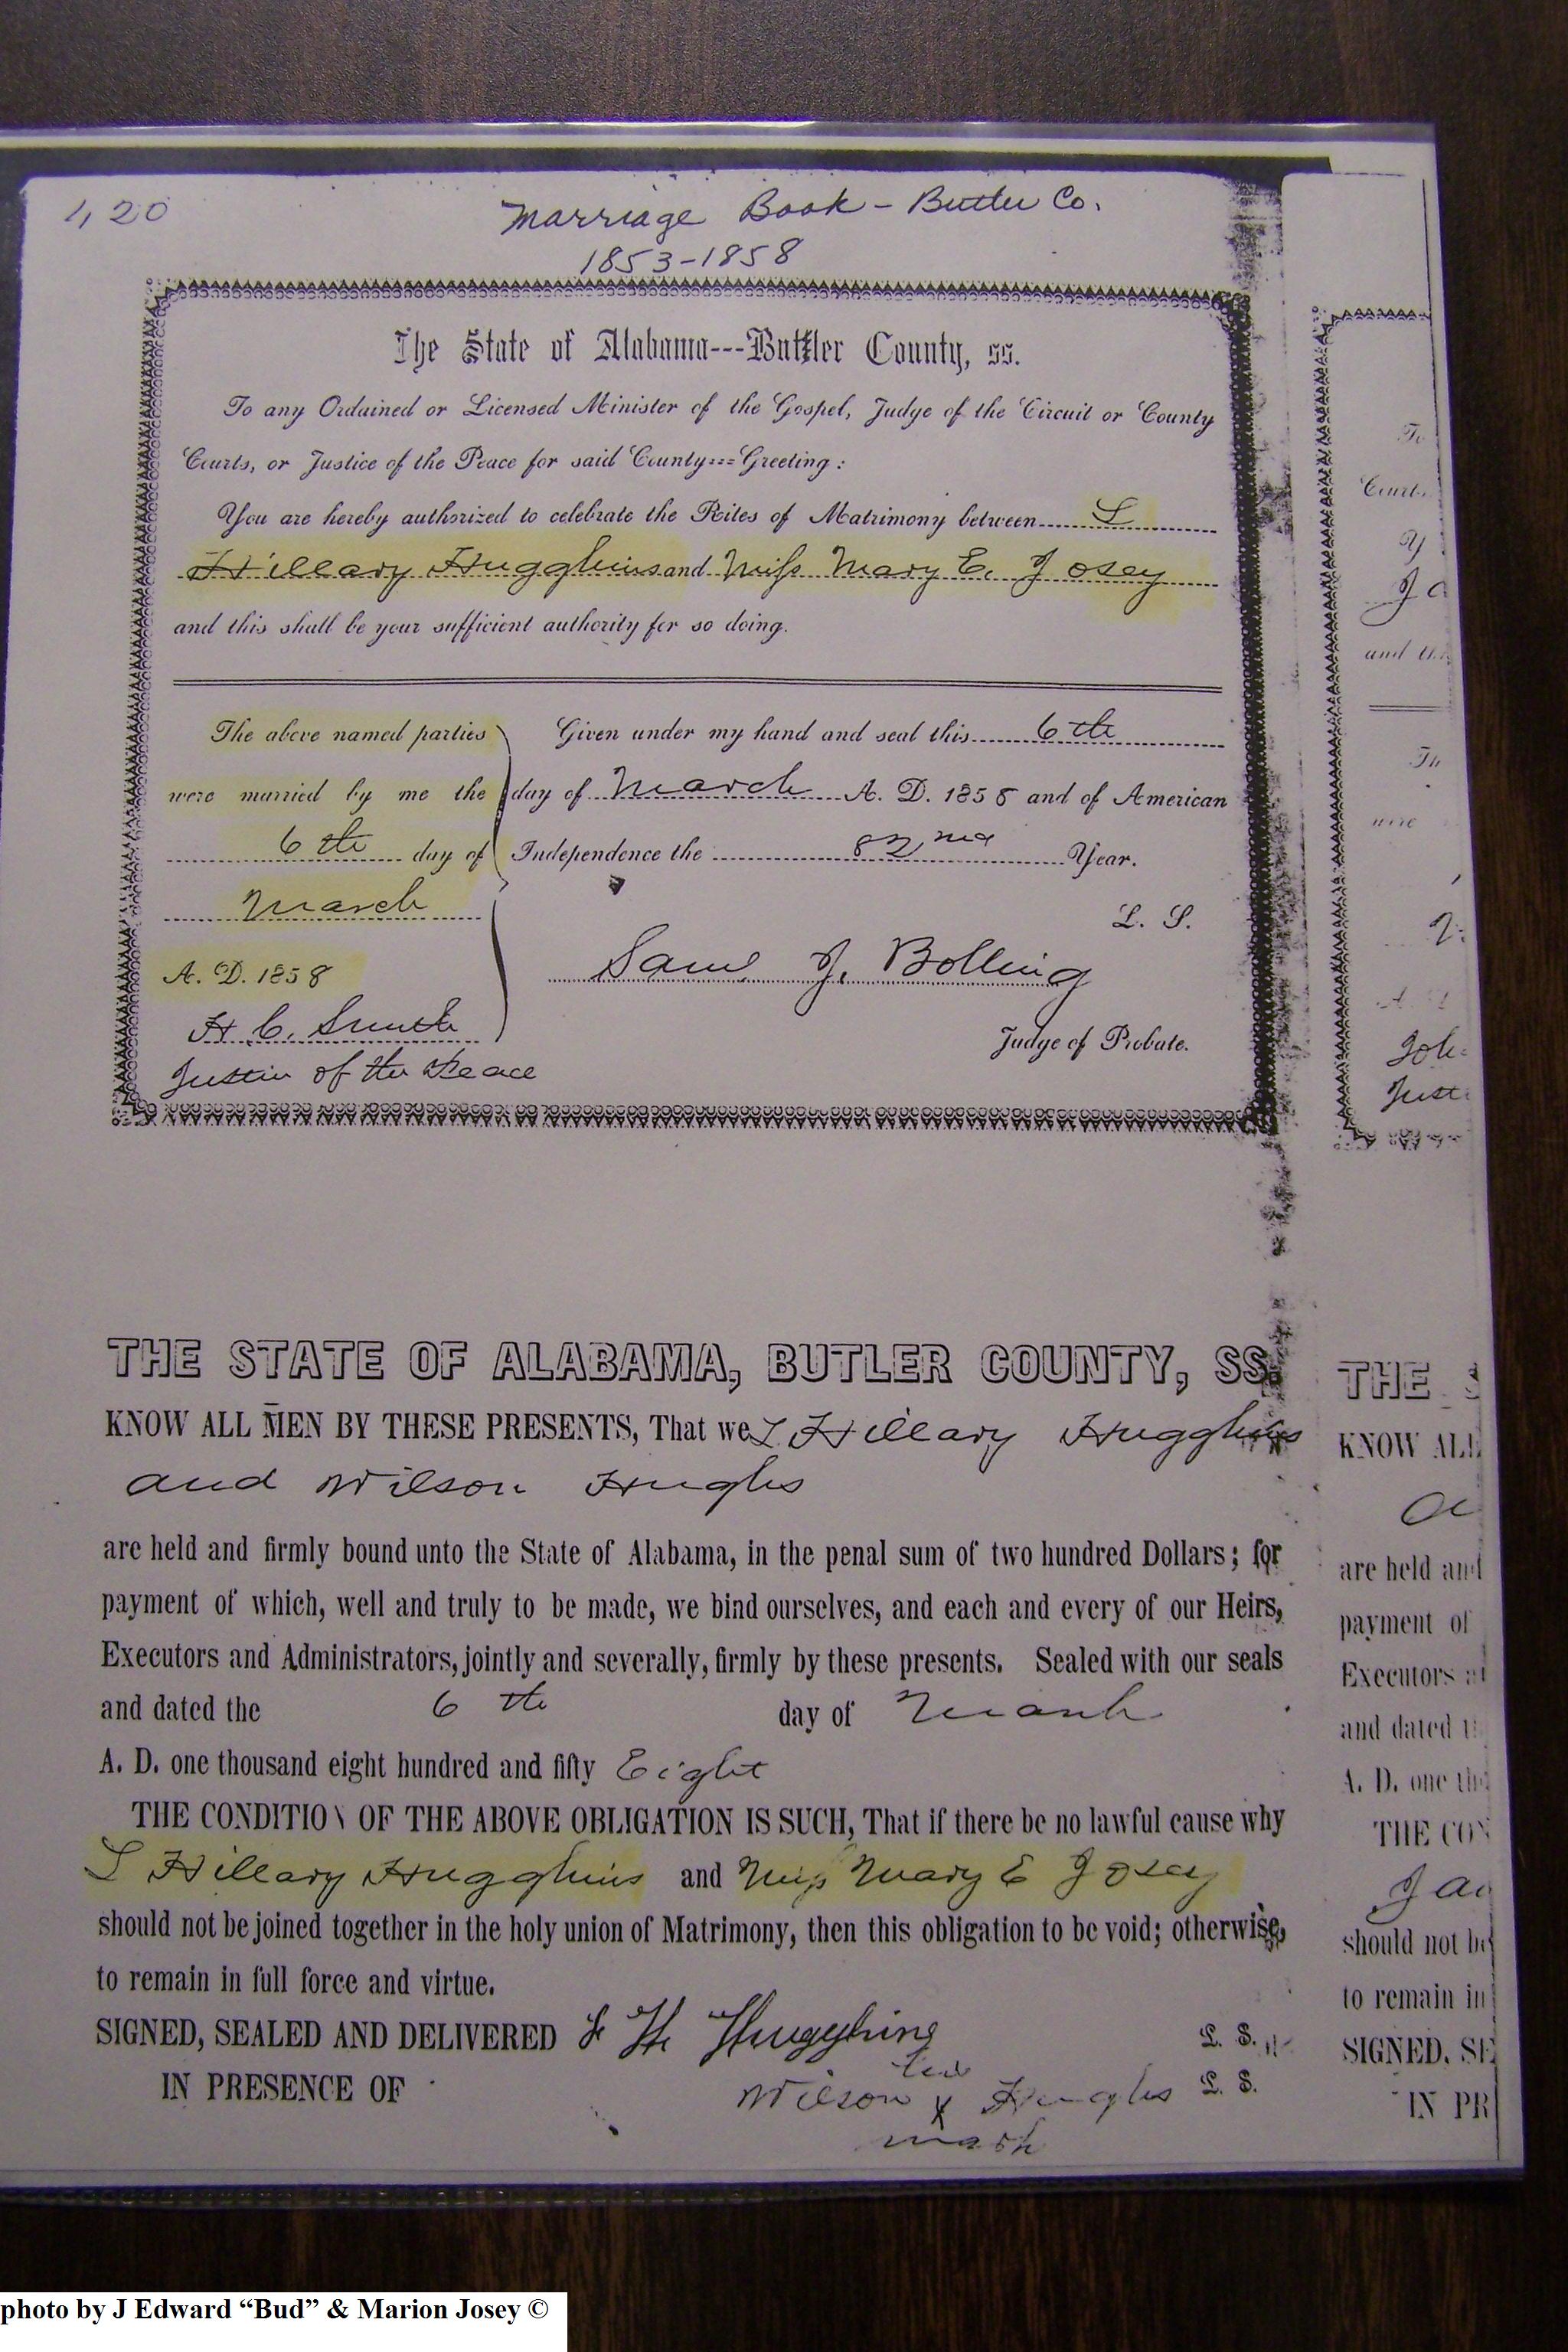 1,20
Marriage Book - Butler Co.
1853-1858
The State of Alabama---Buttler County, ss.
To any Ordained or Licensed Minister of the Gospel, Judge of the Circuit or County
Courts, or Justice of the Peace for said County===Greeting:
You are hereby authorized to celebrate the Rites of Matrimony between L
Hillary Hugghins and Miss Mary E. Josey
and this shall be your sufficient authority for so doing.
The above named parties
were married by me the
6th day of
March
A. D. 1858
H. C. Smith
Justice of the Peace
Given under my hand and seal this 6th
day of March A. D. 1858 and of American
Independence the 82nd Year.
L. S.
Saml J. Bolling
Judge of Probate.
THE STATE OF ALABAMA, BUTLER COUNTY, SS.
KNOW ALL MEN BY THESE PRESENTS, That we L Hillary Hugghins
and Wilson Hughs
are held and firmly bound unto the State of Alabama, in the penal sum of two hundred Dollars; for
payment of which, well and truly to be made, we bind ourselves, and each and every of our Heirs,
Executors and Administrators, jointly and severally, firmly by these presents. Sealed with our seals
and dated the 6th day of March
A. D. one thousand eight hundred and fifty Eight
THE CONDITION OF THE ABOVE OBLIGATION IS SUCH, That if there be no lawful cause why
L Hillary Hugghins and Miss Mary E Josey
should not be joined together in the holy union of Matrimony, then this obligation to be void; otherwise,
to remain in full force and virtue.
SIGNED, SEALED AND DELIVERED L H Hugghins L. S.
IN PRESENCE OF Wilson his X mark Hughs L. S.
To
Court
Y
Ja
and th
Th
were
Joh
Just
THE S
KNOW ALL
are held and
payment of
Executors a
and dated t
A. D. one th
THE CON
should not b
to remain in
SIGNED, SE
IN PR
photo by J Edward “Bud” & Marion Josey ©